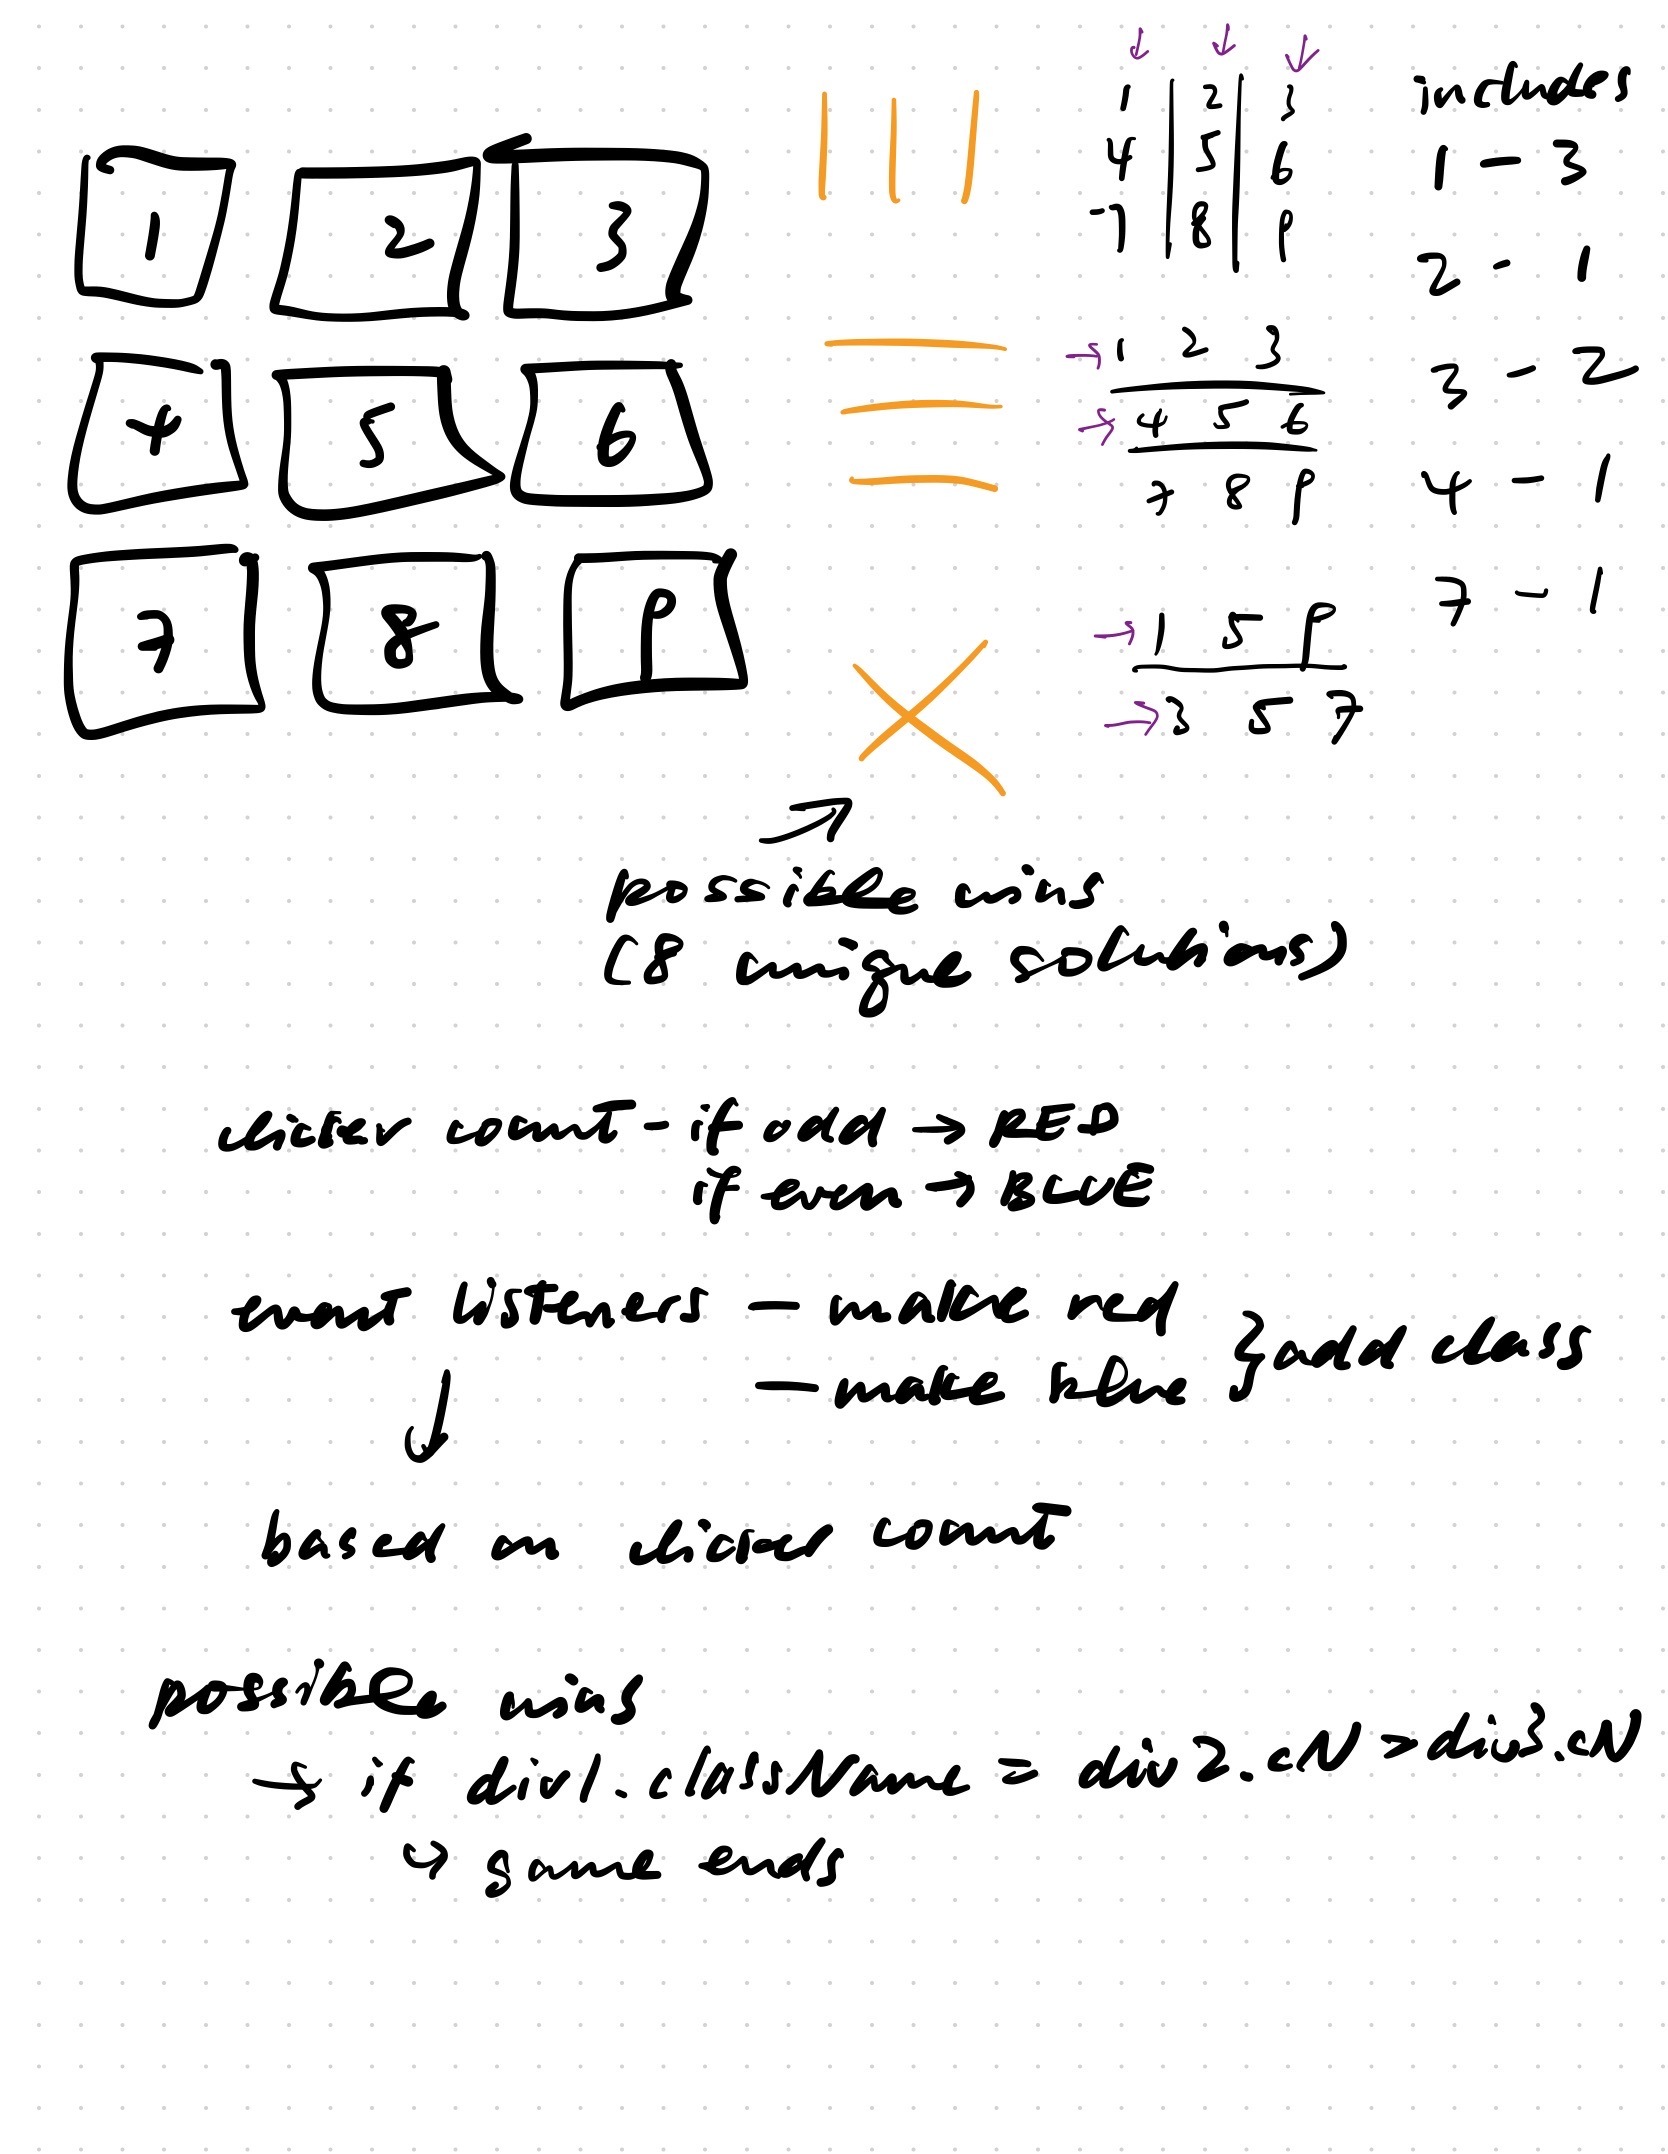 1 2 3
4 5 6
7 8 9
1 2 3
4 5 6
7 8 9
1 2 3
4 5 6
7 8 9
1 5 9
3 5 7
includes
1 - 3
2 - 1
3 - 2
4 - 1
7 - 1
possible wins
(8 unique solutions)
clicker count - if odd → RED
if even → BLUE
event listeners — make red
— make blue } add class
↓
based on clicker count
possible wins
→ if div1.className = div2.cN = div3.cN
↪ game ends